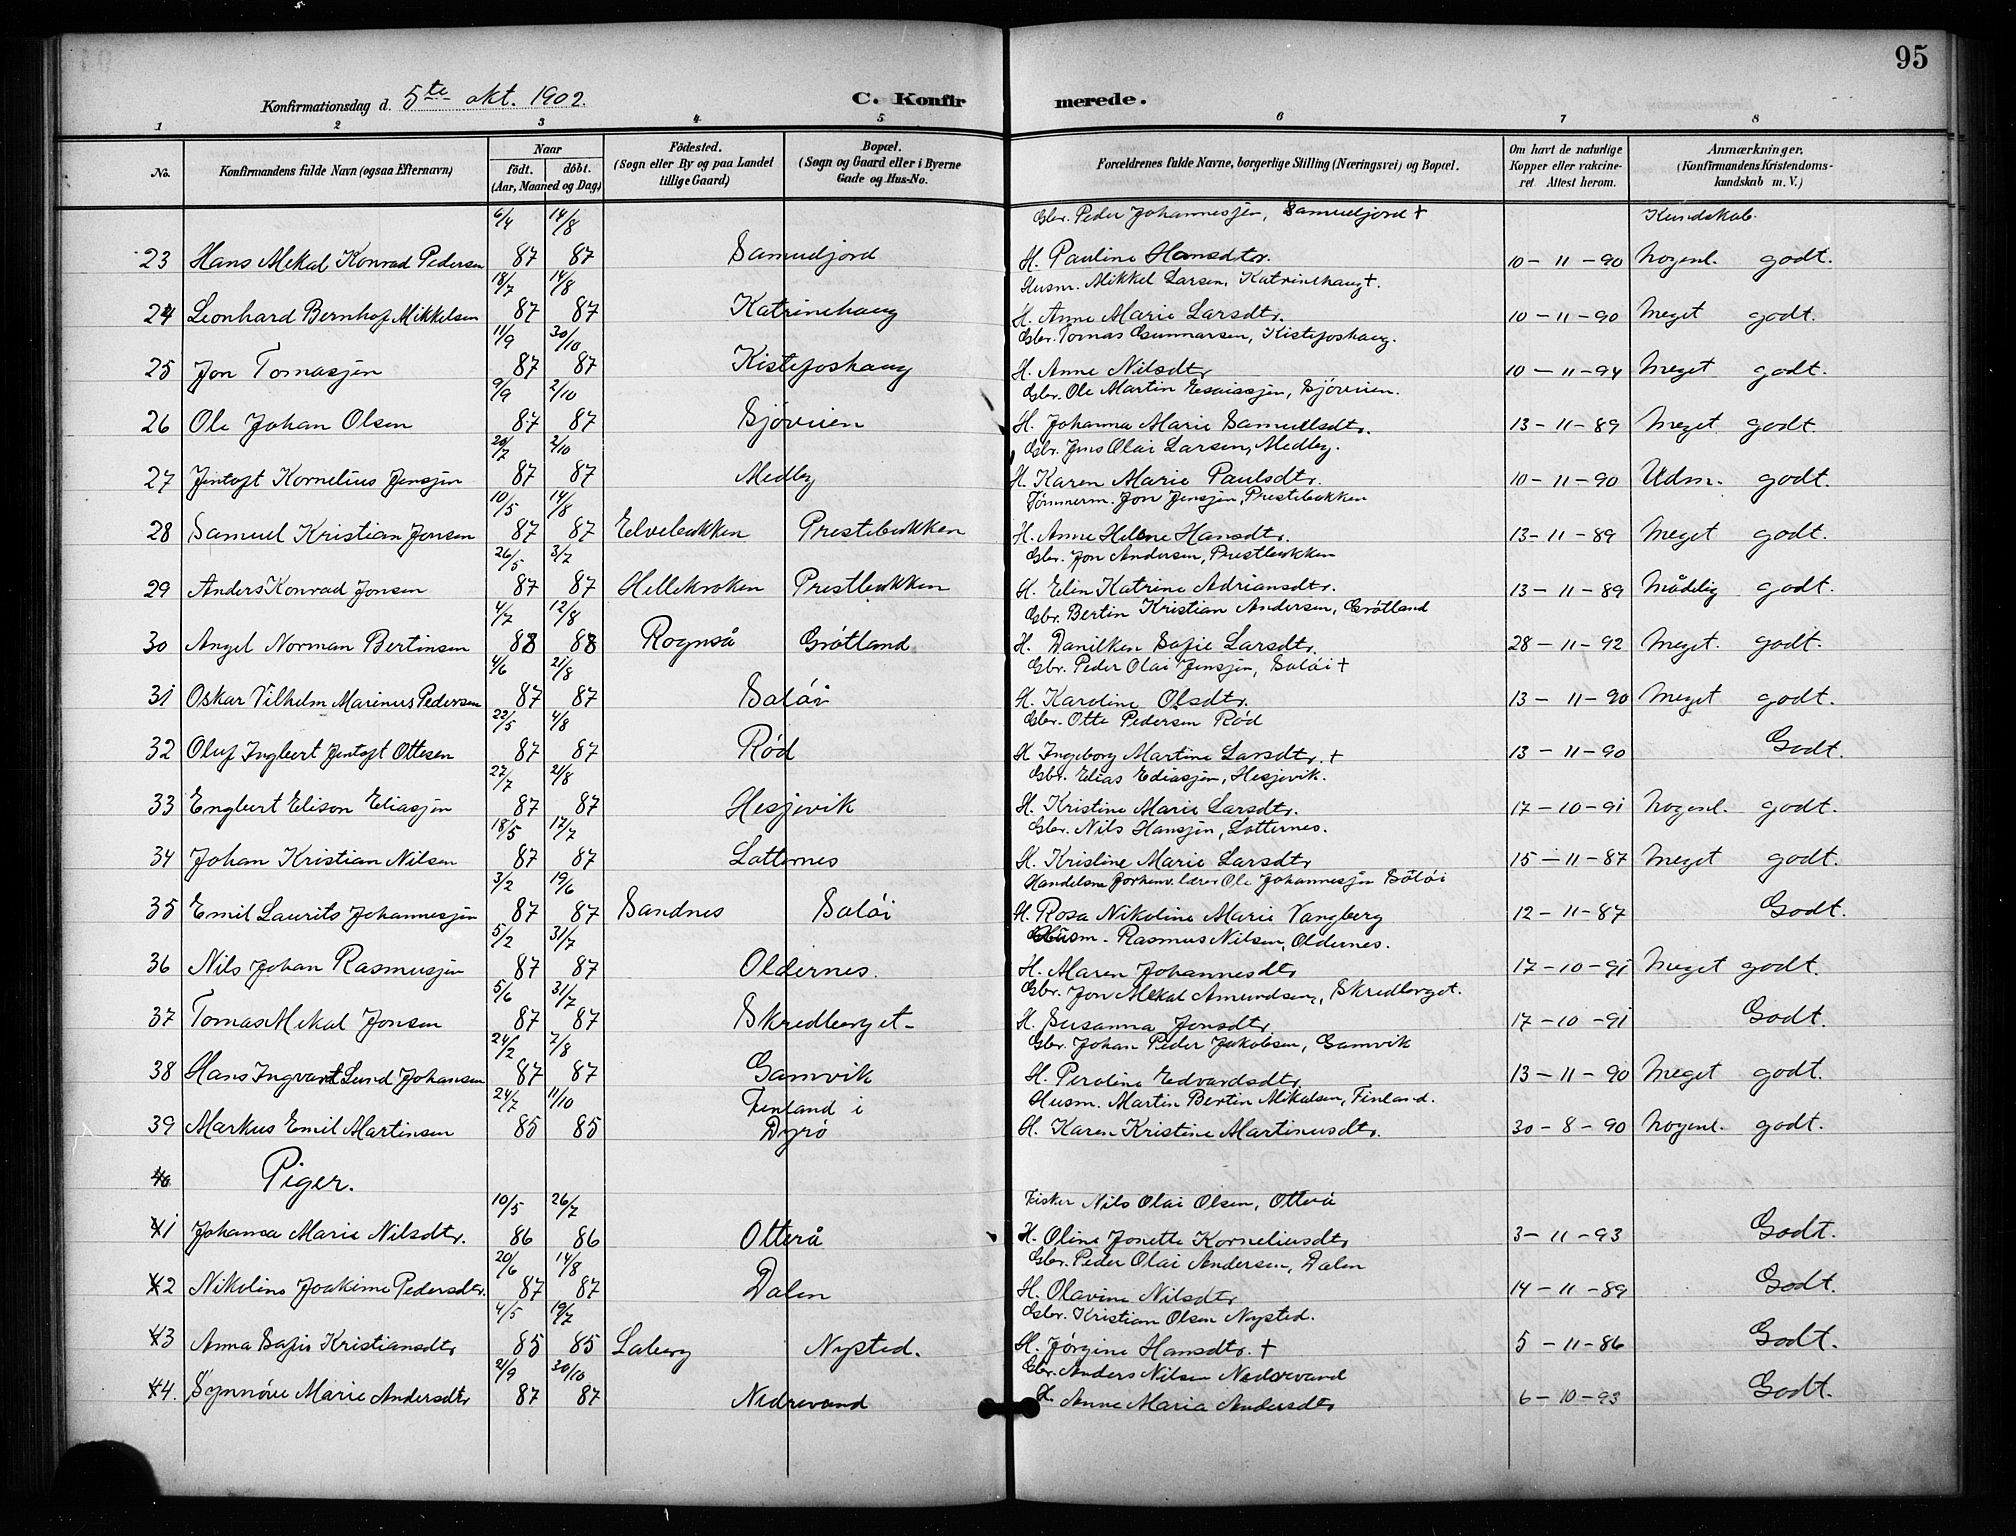 95
Konfirmationsdag d. 5te okt. 1902.
C. Konfirmerede.
1 2 3 4 5 6 7 8
No. Konfirmandens fulde Navn (ogsaa Efternavn) Naar født. døbt. (Aar, Maaned og Dag) Fødested. (Sogn eller By og paa Landet tillige Gaard) Bopæl. (Sogn og Gaard eller i Byerne Gade og Hus-No. Forældrenes fulde Navne, borgerlige Stilling (Næringsvei) og Bopæl. Om havt de naturlige Kopper eller vakcineret. Attest herom. Anmærkninger. (Konfirmandens Kristendomskundskab m. V.)
6/4 14/8 Gbr. Peder Johannesjen, Samueljord + Kundskab.
23 Hans Mekal Konrad Pedersen 87 87 Samueljord H. Pauline Hansdtr. 10-11-90 Nogenl. godt.
18/7 14/8 Husm. Mikkel Larsen, Katrinehaug +.
24 Leonhard Bernhof Mikkelsen 87 87 Katrinehaug H. Anne Marie Larsdtr. 10-11-90 Meget godt.
11/9 30/10 Gbr. Tomas Gunnarsen, Kistefoshaug.
25 Jon Tomasjen 87 87 Kistefoshaug H. Anne Nilsdtr 10-11-94 Meget godt.
9/9 2/10 Gbr. Ole Martin Esaiassjen, Sjøveien.
26 Ole Johan Olsen 87 87 Sjøveien H. Johanna Marie Samuelsdtr. 13-11-89 Meget godt.
20/7 2/10 Gbr. Jens Olai Larsen, Medby.
27 Jentoft Kornelius Jensjen 87 87 Medby H. Karen Marie Paulsdtr. 10-11-90 Udm. godt.
10/5 14/8 Tømmerm. Jon Jensjen, Prestebakken
28 Samuel Kristian Jonsen 87 87 Elvebakken Prestebakken H. Anne Helene Hansdtr. 13-11-89 Meget godt.
26/5 3/7 Gbr. Jon Andersen, Prestbakken
29 Anders Konrad Jonsen 87 87 Hellekroken Prestbakken H. Elen Katrine Adriansdtr. 13-11-89 Mådelig godt.
4/7 12/8 Gbr. Bertin Kristian Andersen, Grøtland
30 Angel Norman Bertinsen 88 88 Rognså Grøtland H. Danilken Sofie Larsdtr. 28-11-92 Meget. godt.
4/6 21/8 Gbr. Peder Olai Jensjen, Soløi +
31 Oskar Vilhelm Marinus Pedersen 87 87 Soløi H. Karoline Olsdtr. 13-11-90 Meget godt.
22/5 4/8 Gbr. Otte Pedersen Rød
32 Oluf Ingbert Jentoft Ottesen 87 87 Rød H Ingeborg Martine Larsdtr. + 13-11-90 Godt.
27/7 21/8 Gbr. Elias Ediasjen, Hesjevik.
33 Engbert Elison Eliasjen 87 87 Hesjevik H. Kristine Marie Larsdtr. 17-10-91 Nogenl. godt.
18/5 17/7 Gbr. Nils Hansjen, Lotternes.
34 Johan Kristian Nilsen 87 87 Lotternes H. Kristine Marie Larsdtr 15-11-87 Meget godt.
3/2 19/6 Handelsm. forhenv. lærer Ole Johannesjen Soløi
35 Emil Laurits Johannesjen 87 87 Sandnes Soløi H. Rosa Nikoline Marie Vangberg 12-11-87 Godt.
5/2 31/7 Husm. Rasmus Nilsen, Oldernes.
36 Nils Johan Rasmusjen 87 87 Oldernes. H. Maren Johannesdtr 17-10-91 Meget godt.
5/6 31/7 Gbr. Jon Mekal Amundsen, Skredberget.
37 Tomas Mekal Jonsen 87 87 Skredberget- H. Susanna Jonsdtr 17-10-91 Godt.
24/2 7/8 Gbr. Johan Peder Jakobsen, Gamvik
38 Hans Ingvart Lund Johansen 87 87 Gamvik H. Peroline Edvardsdtr. 13-11-90 Meget godt.
24/7 11/10 Finland i Husm. Martin Bertin Mikalsen, Finland.
39 Markus Emil Martinsen 85 85 Dyrø H. Karen Kristine Martinusdtr. 30-8-90 Nogenl. godt.
40 Piger.
10/5 26/7 Fisker Nils Olai Olsen, Otterå
41 Johanna Marie Nilsdtr. 86 86 Otterå H. Oline Jonette Korneliusdtr 3-11-93 Godt.
20/6 14/8 Gbr. Peder Olai Andersen, Dalen
42 Nikoline Joakime Pedersdtr. 87 87 Dalen H. Olavine Nilsdtr 14-11-89 Godt.
4/5 19/7 Gbr. Kristian Olsen Nysted.
43 Anna Sofie Kristiansdtr 85 85 Laberg Nysted. H. Jørgine Hansdtr. + 5-11-86 Godt.
21/9 30/10 Gbr. Anders Nilsen Nedrevand
44. Synnøve Marie Andersdtr 87 87 Nedrevand H. Anne Maria Andersdtr 6-10-93 Godt.